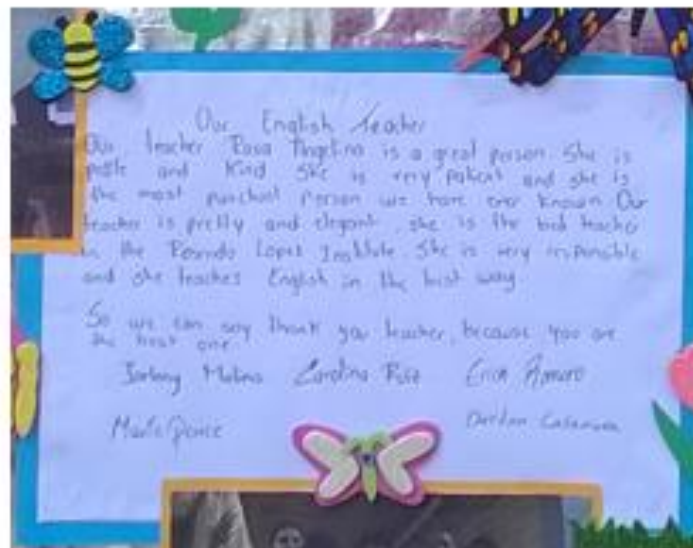 Our English Teacher
Our teacher Rosa Angelina is a great person. She is
polite and kind. She is very patient and she is
the most punctual person we have ever known. Our
teacher is pretty and elegant, she is the best teacher
in the Rosendo Lopez Institute. She is very responsible
and she teaches English in the best way.
So we can say thank you teacher, because you are
the best one.
Molina Carolina Erick Amaro
Ponce